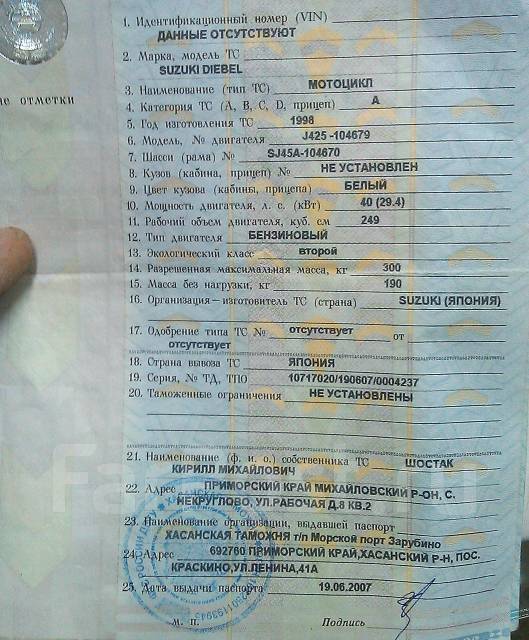 ие отметки
1. Идентификационный номер (VIN)
ДАННЫЕ ОТСУТСТВУЮТ
2. Марка, модель ТС
SUZUKI DIEBEL
3. Наименование (тип ТС) МОТОЦИКЛ
4. Категория ТС (A, B, C, D, прицеп) А
5. Год изготовления ТС 1998
6. Модель, № двигателя J425 -104679
7. Шасси (рама) № SJ45A-104670
8. Кузов (кабина, прицеп) № НЕ УСТАНОВЛЕН
9. Цвет кузова (кабины, прицепа) БЕЛЫЙ
10. Мощность двигателя, л. с. (кВт) 40 (29.4)
11. Рабочий объем двигателя, куб. см 249
12. Тип двигателя БЕНЗИНОВЫЙ
13. Экологический класс второй
14. Разрешенная максимальная масса, кг 300
15. Масса без нагрузки, кг 190
16. Организация – изготовитель ТС (страна) SUZUKI (ЯПОНИЯ)
17. Одобрение типа ТС № отсутствует от
отсутствует
18. Страна вывоза ТС ЯПОНИЯ
19. Серия, № ТД, ТПО 10717020/190607/0004237
20. Таможенные ограничения НЕ УСТАНОВЛЕНЫ
21. Наименование (ф. и. о.) собственника ТС ШОСТАК
КИРИЛЛ МИХАЙЛОВИЧ
22. Адрес ПРИМОРСКИЙ КРАЙ МИХАЙЛОВСКИЙ Р-ОН, С.
НЕКРУГЛОВО, УЛ.РАБОЧАЯ Д.8 КВ.2
23. Наименование организации, выдавшей паспорт
ХАСАНСКАЯ ТАМОЖНЯ т/п Морской порт Зарубино
24. Адрес 692760 ПРИМОРСКИЙ КРАЙ,ХАСАНСКИЙ Р-Н, ПОС.
КРАСКИНО,УЛ.ЛЕНИНА,41А
25. Дата выдачи паспорта 19.06.2007
М. П. Подпись